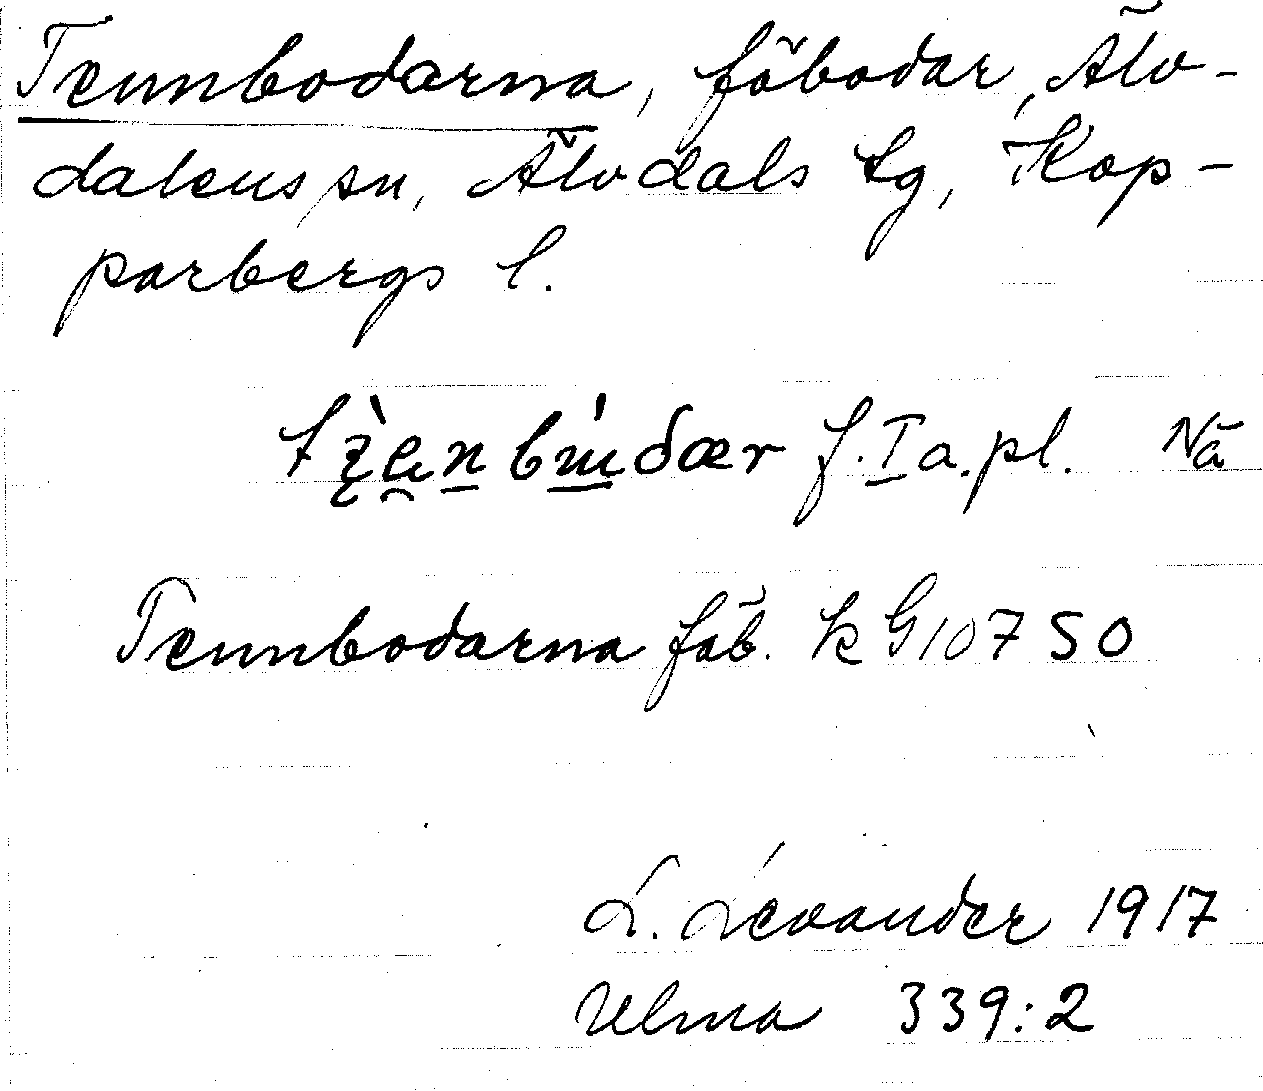 Tennbodarna, fäbodar, Älv-
dalens sn, Älvdals tg, Kop-
parbergs l.
f. I a. pl. Nä
Tennbodarna fäb. k G10750
L. Levander 1917
Ulma 339:2